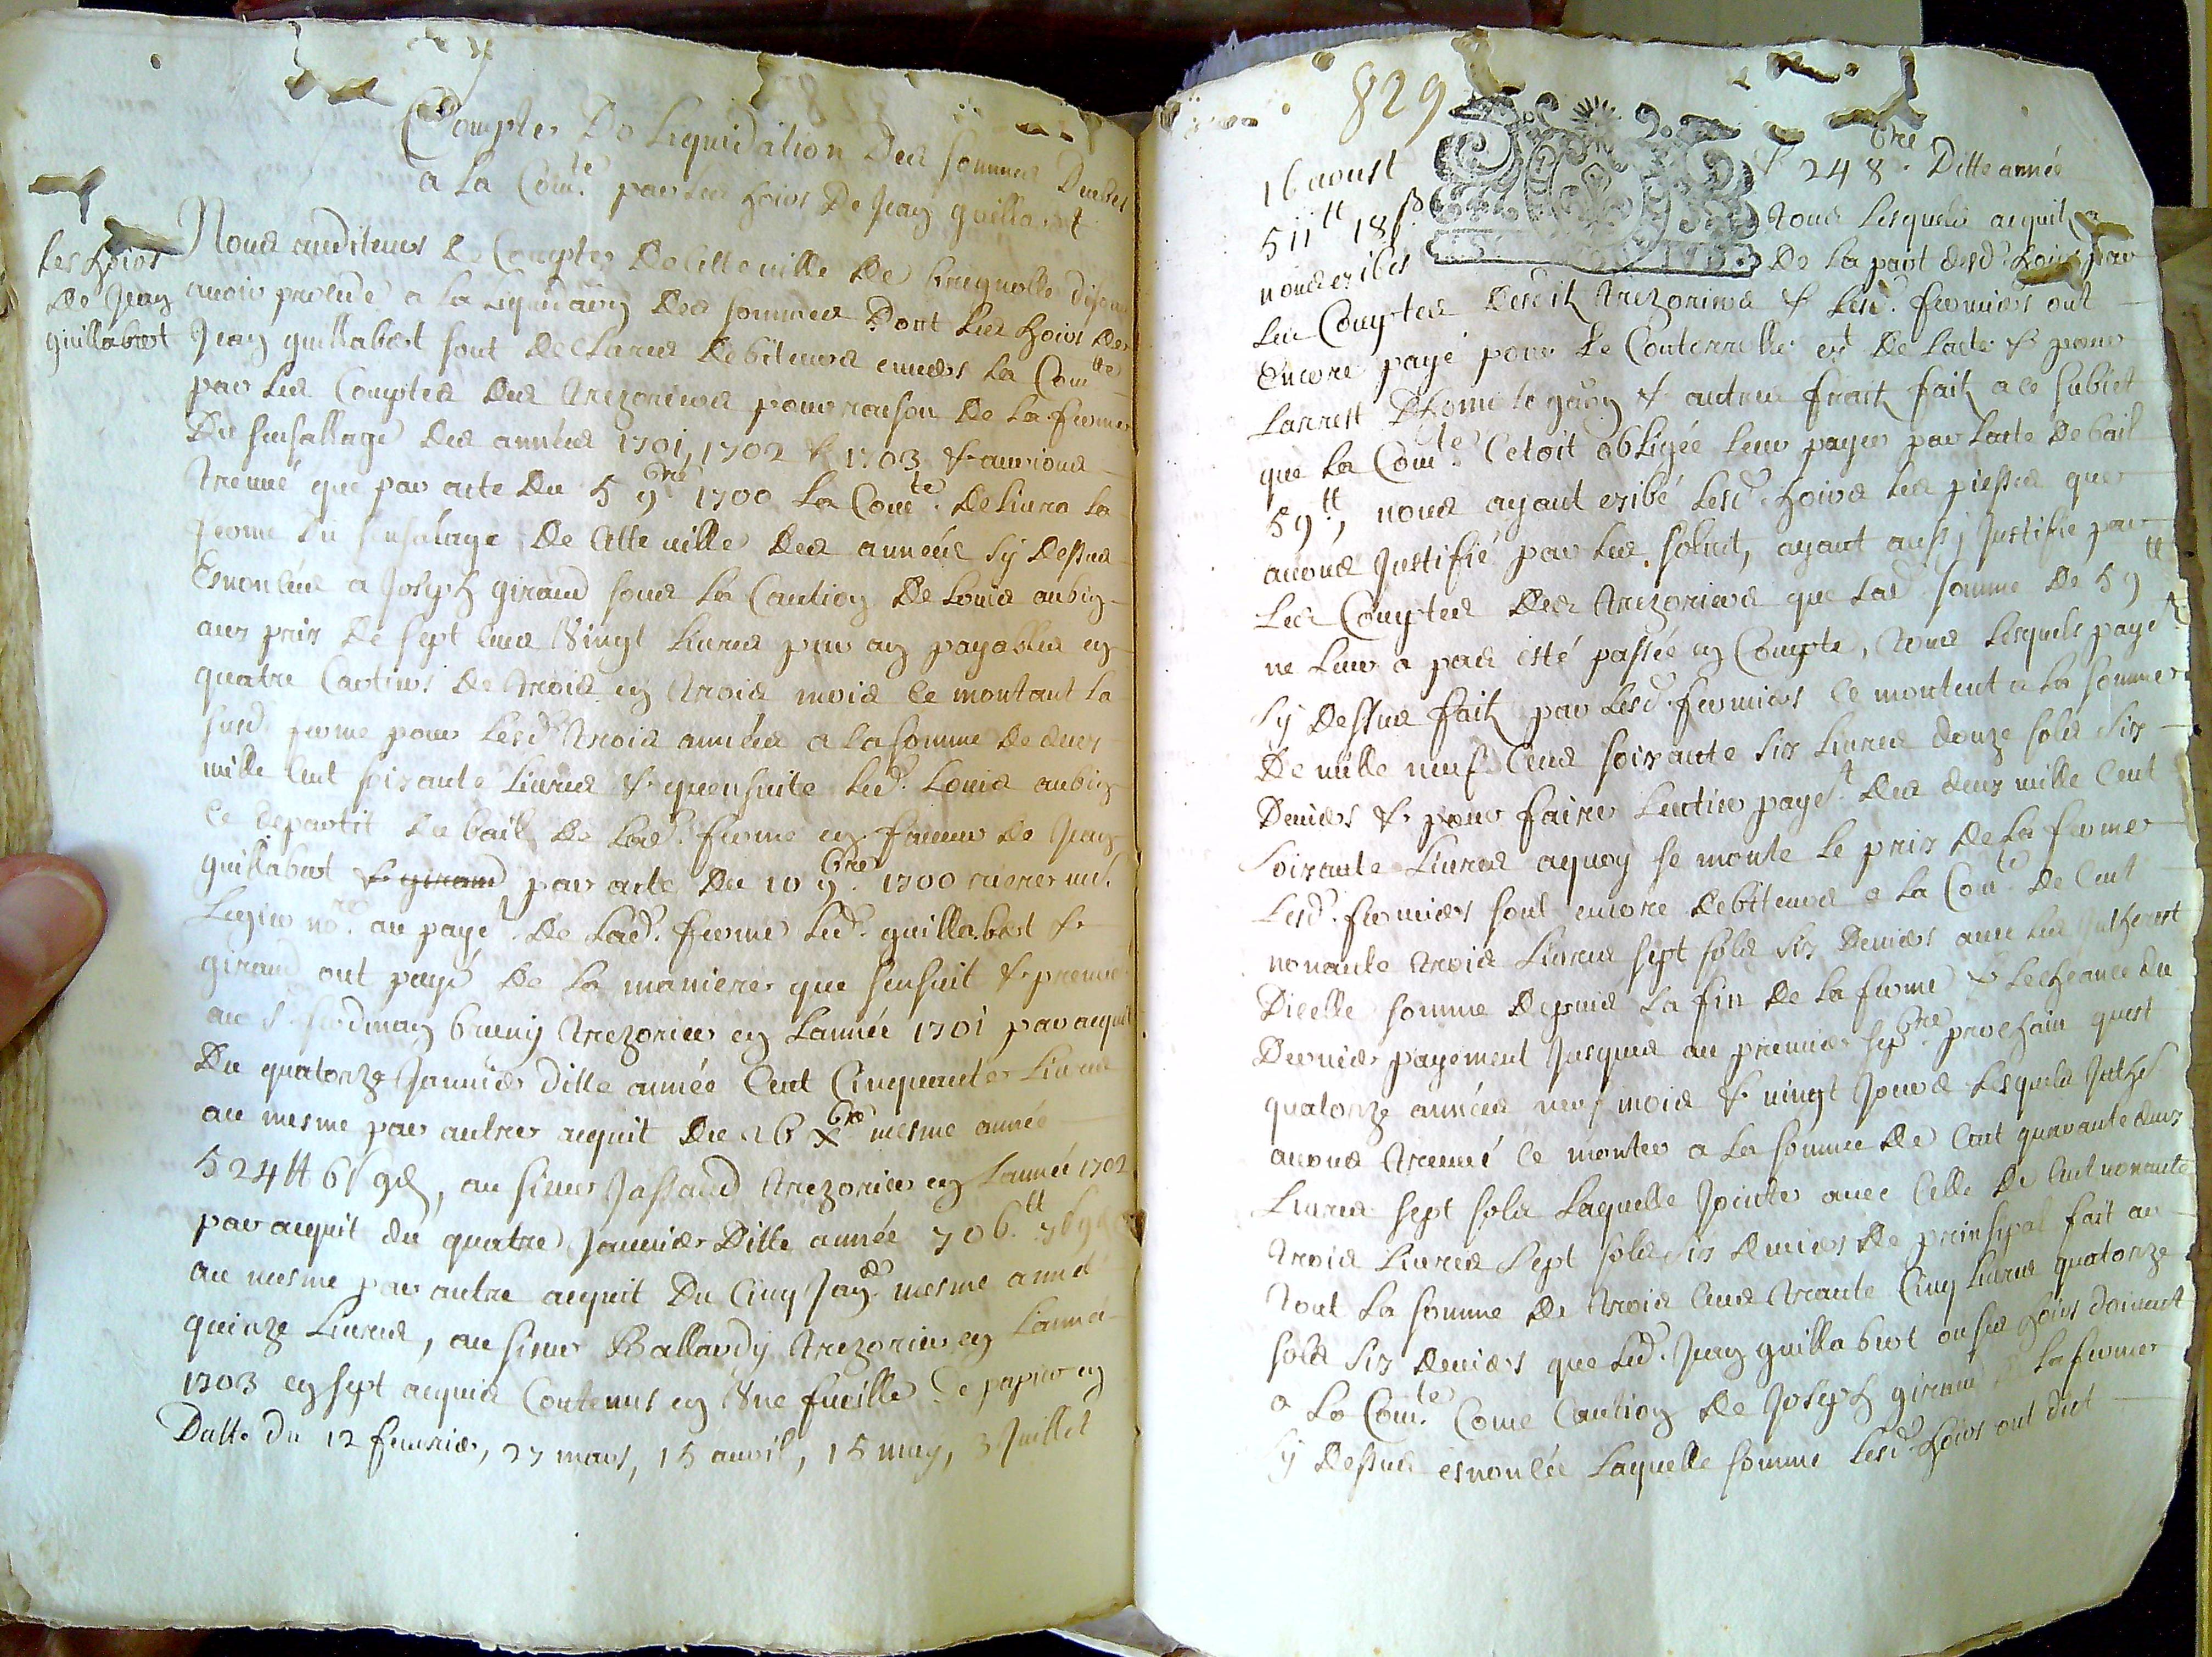 Comptes De Liquidation Des sommes Deubes
a La Com.te par Les hoirs De Jean guillabert
Les hoirs
De Jean
guillabert
Nous auditeurs De Comptes De Cette ville De Brignolle disons
avoir procedé a La Liquida͠on Des sommes Dont Les hoirs De
Jean guillabert sont Declarés Debiteurs envers La Com.tte
par Les Comptes Des Trezoriers pour raison De La ferme
Du sensallage des années 1701, 1702 & 1703 & aurions
Treuvé que par acte Du 5 9bre 1700 La Com.te Delivra La
ferme Du sensalage De Cette ville Des années sy Dessus
Enoncées a Joseph giraud sous La Caution De Louis aubin
aux prix De sept Cens Vingt Livres par an payables en
quatre Cartiers De trois en trois mois Ce montant La
susd. ferme pour Lesd. trois années a La somme De deux
mille Cent soixante Livres & quensuite Led. Louis aubin
Ce departit du bail De Lad. ferme en faveur De Jean
guillabert & giraud par acte Du 10 9bre 1700 riere m.e
Legier no.re au paye.t De Lad. ferme Led. guillabert &
giraud ont payé De La maniere que sensuit & premie.
au s.r ferdinan bruny Trezorier en Lannée 1701 par acquit
Du quatorze Janvier ditte année Cent Cinquante Livres
au mesme par autre acquit Du 26 Xbre mesme année
524tt 6s 9d, au sieur Jassaud Trezorier en Lannée 1702
par acquit du quatre Janvier Ditte année 706tt 7s 9d
au mesme par autre acquit Du Cinq Jan.er mesme année
quinze Livres, au sieur Ballardy Trezorier en Lannée
1703 en sept acquis Contenus en Une fueille De papier en
Datte du 12 fevrier, 27 mars, 15 avril, 15 may, 3 Juillet
829
16 aoust & 24 8bre Ditte année
511tt 18s Tous Lesquels acquits
nous exibés De La part desd. hoirs par
Les Comptes Desdits Trezoriers & Lesd. fermiers ont
Encore payé pour Le Conterrolle et De Lacte & pour
Larrest & autres fraits faits a ce subiet
que La Com.te Cetoit obligée Leur payer par Lacte De bail
59tt, nous ayant exibé Lesd. hoirs Les piesses que
avons Justifié par Les soluit, ayant aussy Justifié par
Les Comptes Des Trezoriers que Lad. somme De 59tt
ne Leur a pas esté passée en Compte, Tous Lesquels paye.t
sy Dessus faits par Lesd. fermiers Ce montent a La somme
De mille neuf Cens soixante six Livres douze sols six
Deniers & pour faire Lentier paye.t Des deux mille Cent
soixante Livres aquoy se monte Le prix De La ferme
Lesd. fermiers sont encore Debiteurs a La Com.te De Cent
nonante trois Livres sept sols six Deniers avec Les Intherest
Dicelle somme Depuis La fin De La ferme & Lecheance du
Dernier payement Jusques au premier sep.bre prochain quest
quatorze années neuf mois & vingt Jours Lesquels Inthe.
avons Treuvé Ce monter a La somme De Cent quarante deux
Livres sept sols Laquelle Jointe avec Celle De Cent nonante
trois Livres sept sols six Deniers De prinsipal fait au
Tout La somme De trois Cens trante Cinq Livres quatorze
sols six Deniers que Led. Jean guillabert ou ses hoirs doivent
a La Com.te Come Caution De Joseph giraud De La ferme
sy Dessus enoncée Laquelle somme Lesd. hoirs ont dit